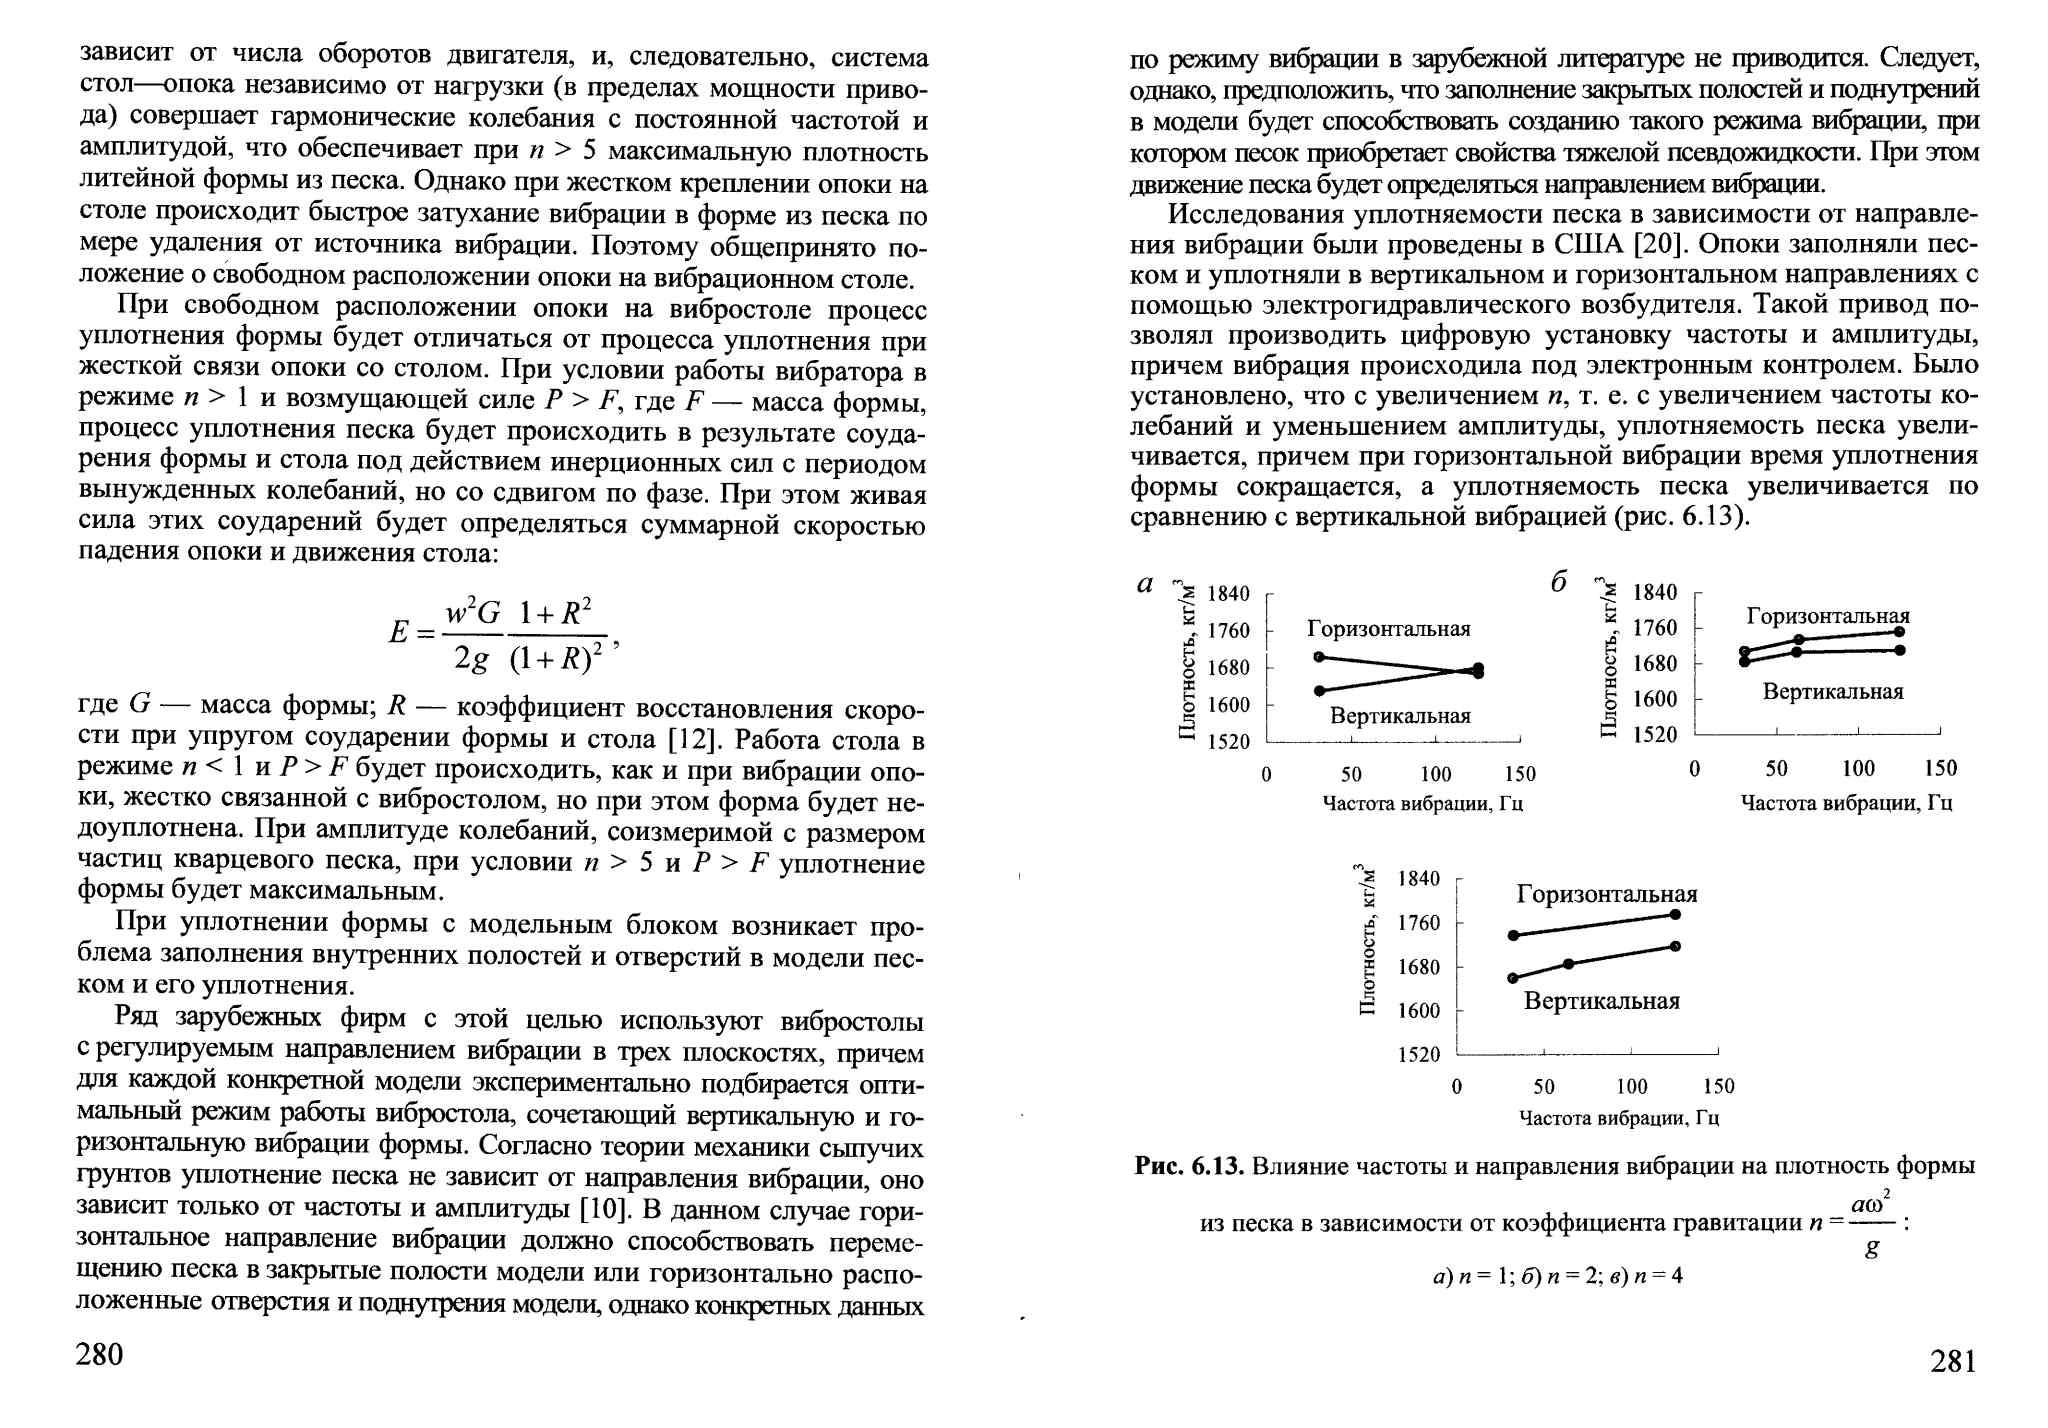 зависит от числа оборотов двигателя, и, следовательно, система
стол—опока независимо от нагрузки (в пределах мощности приво-
да) совершает гармонические колебания с постоянной частотой и
амплитудой, что обеспечивает при n > 5 максимальную плотность
литейной формы из песка. Однако при жестком креплении опоки на
столе происходит быстрое затухание вибрации в форме из песка по
мере удаления от источника вибрации. Поэтому общепринято по-
ложение о свободном расположении опоки на вибрационном столе.
При свободном расположении опоки на вибростоле процесс
уплотнения формы будет отличаться от процесса уплотнения при
жесткой связи опоки со столом. При условии работы вибратора в
режиме n > 1 и возмущающей силе P > F, где F — масса формы,
процесс уплотнения песка будет происходить в результате соуда-
рения формы и стола под действием инерционных сил с периодом
вынужденных колебаний, но со сдвигом по фазе. При этом живая
сила этих соударений будет определяться суммарной скоростью
падения опоки и движения стола:
E = w²G/2g (1 + R²)/(1 + R)²,
где G — масса формы; R — коэффициент восстановления скоро-
сти при упругом соударении формы и стола [12]. Работа стола в
режиме n < 1 и P > F будет происходить, как и при вибрации опо-
ки, жестко связанной с вибростолом, но при этом форма будет не-
доуплотнена. При амплитуде колебаний, соизмеримой с размером
частиц кварцевого песка, при условии n > 5 и P > F уплотнение
формы будет максимальным.
При уплотнении формы с модельным блоком возникает про-
блема заполнения внутренних полостей и отверстий в модели пес-
ком и его уплотнения.
Ряд зарубежных фирм с этой целью используют вибростолы
с регулируемым направлением вибрации в трех плоскостях, причем
для каждой конкретной модели экспериментально подбирается опти-
мальный режим работы вибростола, сочетающий вертикальную и го-
ризонтальную вибрации формы. Согласно теории механики сыпучих
грунтов уплотнение песка не зависит от направления вибрации, оно
зависит только от частоты и амплитуды [10]. В данном случае гори-
зонтальное направление вибрации должно способствовать переме-
щению песка в закрытые полости модели или горизонтально распо-
ложенные отверстия и поднутрения модели, однако конкретных данных
280
по режиму вибрации в зарубежной литературе не приводится. Следует,
однако, предположить, что заполнение закрытых полостей и поднутрений
в модели будет способствовать созданию такого режима вибрации, при
котором песок приобретает свойства тяжелой псевдожидкости. При этом
движение песка будет определяться направлением вибрации.
Исследования уплотняемости песка в зависимости от направле-
ния вибрации были проведены в США [20]. Опоки заполняли пес-
ком и уплотняли в вертикальном и горизонтальном направлениях с
помощью электрогидравлического возбудителя. Такой привод по-
зволял производить цифровую установку частоты и амплитуды,
причем вибрация происходила под электронным контролем. Было
установлено, что с увеличением n, т. е. с увеличением частоты ко-
лебаний и уменьшением амплитуды, уплотняемость песка увели-
чивается, причем при горизонтальной вибрации время уплотнения
формы сокращается, а уплотняемость песка увеличивается по
сравнению с вертикальной вибрацией (рис. 6.13).
а
Плотность, кг/м³
1840
1760
1680
1600
1520
Горизонтальная
Вертикальная
0 50 100 150
Частота вибрации, Гц
б
Плотность, кг/м³
1840
1760
1680
1600
1520
Горизонтальная
Вертикальная
0 50 100 150
Частота вибрации, Гц
Плотность, кг/м³
1840
1760
1680
1600
1520
Горизонтальная
Вертикальная
0 50 100 150
Частота вибрации, Гц
Рис. 6.13. Влияние частоты и направления вибрации на плотность формы
из песка в зависимости от коэффициента гравитации n = aω²/g :
а) n = 1; б) n = 2; в) n = 4
281